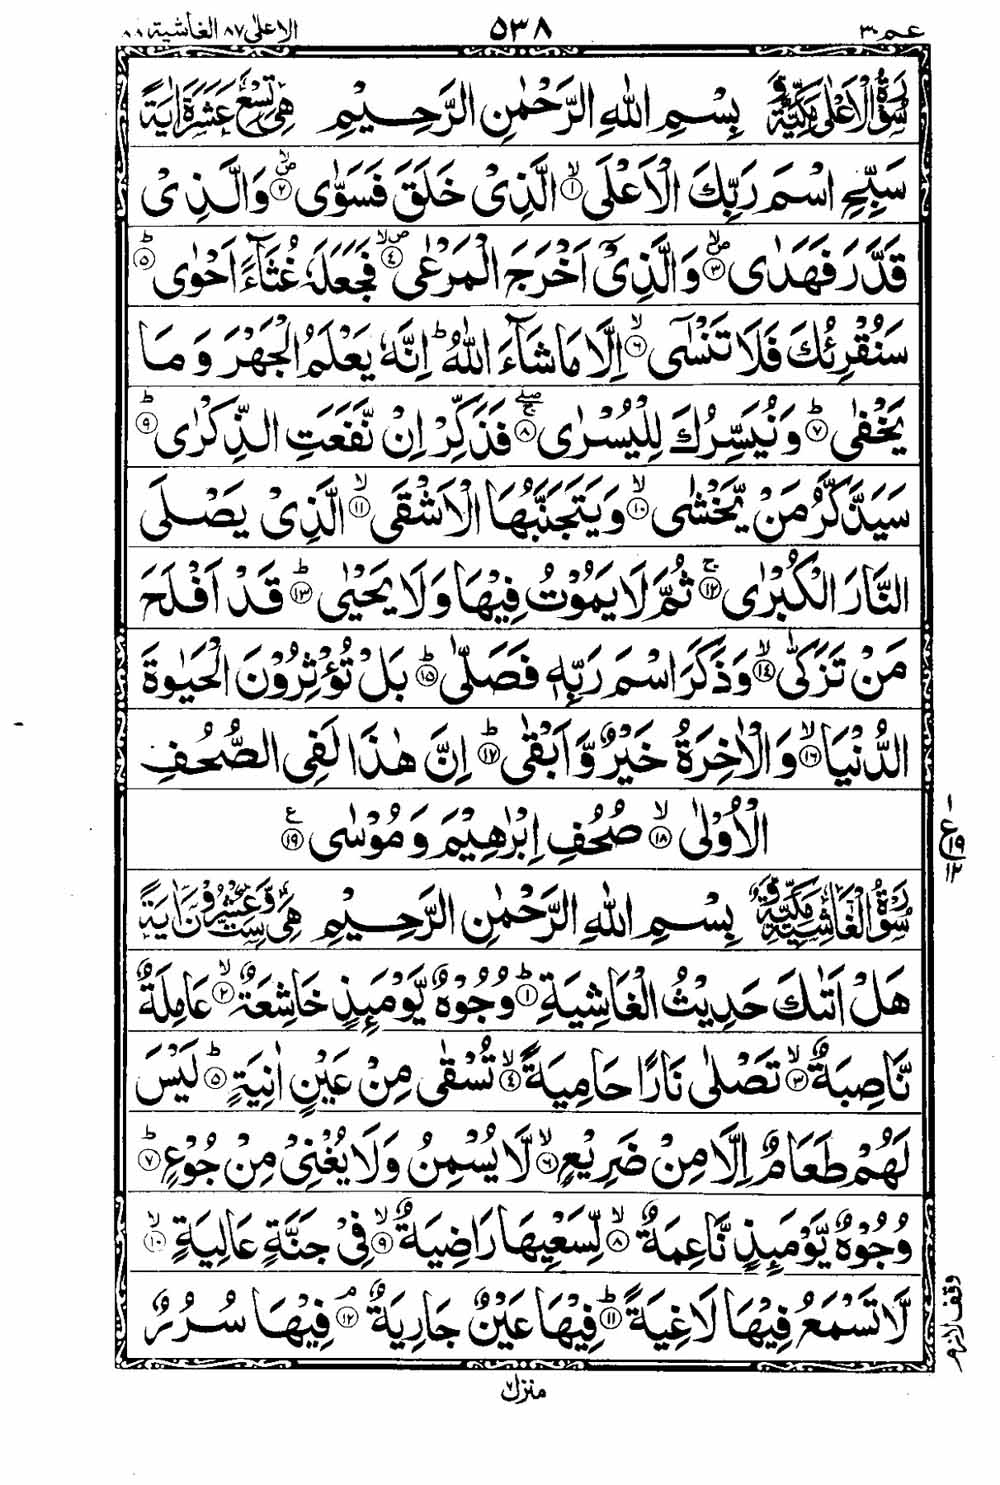 عم ٣٠
٥٣٨
الاعلى ٨٧ الغاشية ٨٨
سُوْرَةُ الْاَعْلٰى مَكِّيَّةٌ بِسْمِ اللّٰهِ الرَّحْمٰنِ الرَّحِيْمِ هِىَ تِسْعَ عَشْرَةَ اٰيَةً
سَبِّحِ اسْمَ رَبِّكَ الْاَعْلَى ۙ﴿١﴾ الَّذِىْ خَلَقَ فَسَوّٰى ۙ﴿٢﴾ وَالَّذِىْ
قَدَّرَ فَهَدٰى ۙ﴿٣﴾ وَالَّذِىْۤ اَخْرَجَ الْمَرْعٰى ۙ﴿٤﴾ فَجَعَلَهٗ غُثَآءً اَحْوٰى ؕ﴿٥﴾
سَنُقْرِئُكَ فَلَا تَنْسٰٓى ۙ﴿٦﴾ اِلَّا مَا شَآءَ اللّٰهُ ؕ اِنَّهٗ يَعْلَمُ الْجَهْرَ وَ مَا
يَخْفٰى ؕ﴿٧﴾ وَنُيَسِّرُكَ لِلْيُسْرٰى ۖۚ﴿٨﴾ فَذَكِّرْ اِنْ نَّفَعَتِ الذِّكْرٰى ؕ﴿٩﴾
سَيَذَّكَّرُ مَنْ يَّخْشٰى ۙ﴿١٠﴾ وَيَتَجَنَّبُهَا الْاَشْقَى ۙ﴿١١﴾ الَّذِىْ يَصْلَى
النَّارَ الْكُبْرٰى ۚ﴿١٢﴾ ثُمَّ لَا يَمُوْتُ فِيْهَا وَلَا يَحْيٰى ؕ﴿١٣﴾ قَدْ اَفْلَحَ
مَنْ تَزَكّٰى ۙ﴿١٤﴾ وَذَكَرَ اسْمَ رَبِّهٖ فَصَلّٰى ؕ﴿١٥﴾ بَلْ تُؤْثِرُوْنَ الْحَيٰوةَ
الدُّنْيَا ۙ﴿١٦﴾ وَالْاٰخِرَةُ خَيْرٌ وَّاَبْقٰى ؕ﴿١٧﴾ اِنَّ هٰذَا لَفِى الصُّحُفِ
الْاُوْلٰى ۙ﴿١٨﴾ صُحُفِ اِبْرٰهِيْمَ وَمُوْسٰى ﴿١٩﴾ ع
ع ١٩ ١٢
سُوْرَةُ الْغَاشِيَةِ مَكِّيَّةٌ بِسْمِ اللّٰهِ الرَّحْمٰنِ الرَّحِيْمِ هِىَ سِتٌّ وَّعِشْرُوْنَ اٰيَةً
هَلْ اَتٰىكَ حَدِيْثُ الْغَاشِيَةِ ؕ﴿١﴾ وُجُوْهٌ يَّوْمَئِذٍ خَاشِعَةٌ ۙ﴿٢﴾ عَامِلَةٌ
نَّاصِبَةٌ ۙ﴿٣﴾ تَصْلٰى نَارًا حَامِيَةً ۙ﴿٤﴾ تُسْقٰى مِنْ عَيْنٍ اٰنِيَةٍ ؕ﴿٥﴾ لَيْسَ
لَهُمْ طَعَامٌ اِلَّا مِنْ ضَرِيْعٍ ۙ﴿٦﴾ لَّا يُسْمِنُ وَلَا يُغْنِىْ مِنْ جُوْعٍ ؕ﴿٧﴾
وُجُوْهٌ يَّوْمَئِذٍ نَّاعِمَةٌ ۙ﴿٨﴾ لِّسَعْيِهَا رَاضِيَةٌ ۙ﴿٩﴾ فِىْ جَنَّةٍ عَالِيَةٍ ۙ﴿١٠﴾
لَّا تَسْمَعُ فِيْهَا لَاغِيَةً ؕ﴿١١﴾ فِيْهَا عَيْنٌ جَارِيَةٌ ۘ﴿١٢﴾ فِيْهَا سُرُرٌ
وقف لازم
منزل ٧